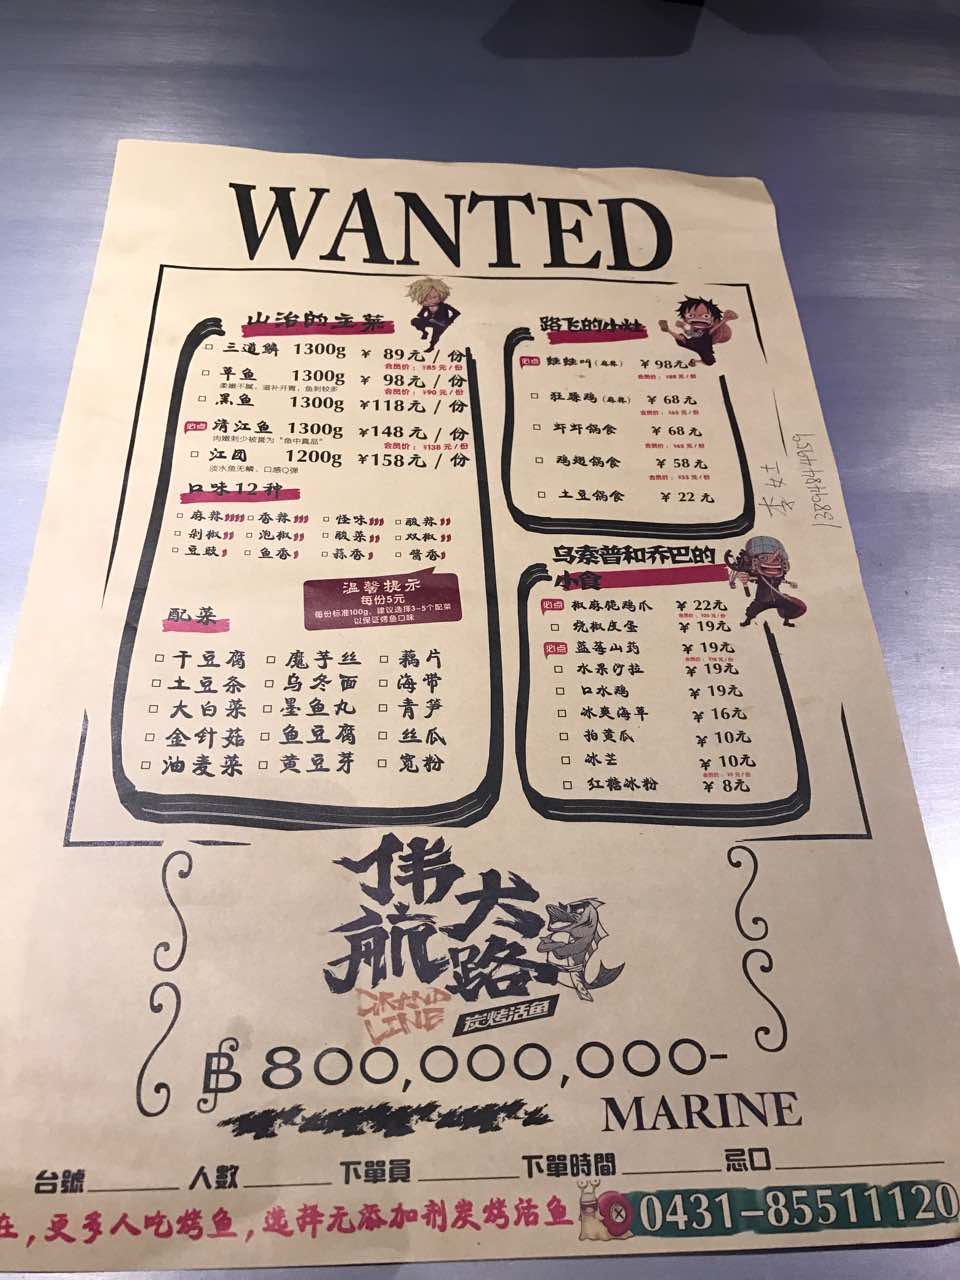 WANTED
山治的主菜
三道鳞 1300g ¥ 89元 / 份
会员价：¥85 元 / 份
草鱼 1300g ¥ 98元 / 份
柔嫩不腻、滋补开胃，鱼刺较多
会员价：¥90 元 / 份
黑鱼 1300g ¥118元 / 份
必点 清江鱼 1300g ¥148元 / 份
肉嫩刺少被誉为“鱼中真品”
会员价：¥138 元 / 份
江团 1200g ¥158元 / 份
淡水鱼无鳞、口感Q弹
口味12种
麻辣 香辣 怪味 酸辣
剁椒 泡椒 酸菜 双椒
豆豉 鱼香 蒜香 酱香
温馨提示
每份5元
每份标准100g，建议选择3-5个配菜
以保证烤鱼口味
配菜
干豆腐 魔芋丝 藕片
土豆条 乌冬面 海带
大白菜 墨鱼丸 青笋
金针菇 鱼豆腐 丝瓜
油麦菜 黄豆芽 宽粉
路飞的小灶
必点 蛙蛙叫（麻辣） ¥98元
会员价：¥88 元 / 份
狂躁鸡（麻辣） ¥ 68元
会员价：¥65 元 / 份
虾虾锅食 ¥ 68元
会员价：¥65 元 / 份
鸡翅锅食 ¥ 58元
会员价：¥55 元 / 份
土豆锅食 ¥ 22元
李女士
15644484682
乌索普和乔巴的
小食
必点 椒麻脆鸡爪 ¥ 22元
烧椒皮蛋 ¥ 19元
必点 蓝莓山药 ¥ 19元
水果沙拉 ¥ 19元
口水鸡 ¥ 19元
冰爽海草 ¥ 16元
拍黄瓜 ¥ 10元
冰芒 ¥ 10元
红糖冰粉 ¥ 8元
伟大
航路
GRAND
LINE
炭烤活鱼
฿ 800,000,000-
MARINE
台號 人數 下單員 下單時間 忌口
在，更多人吃烤鱼，选择无添加剂炭烤活鱼 0431-85511120